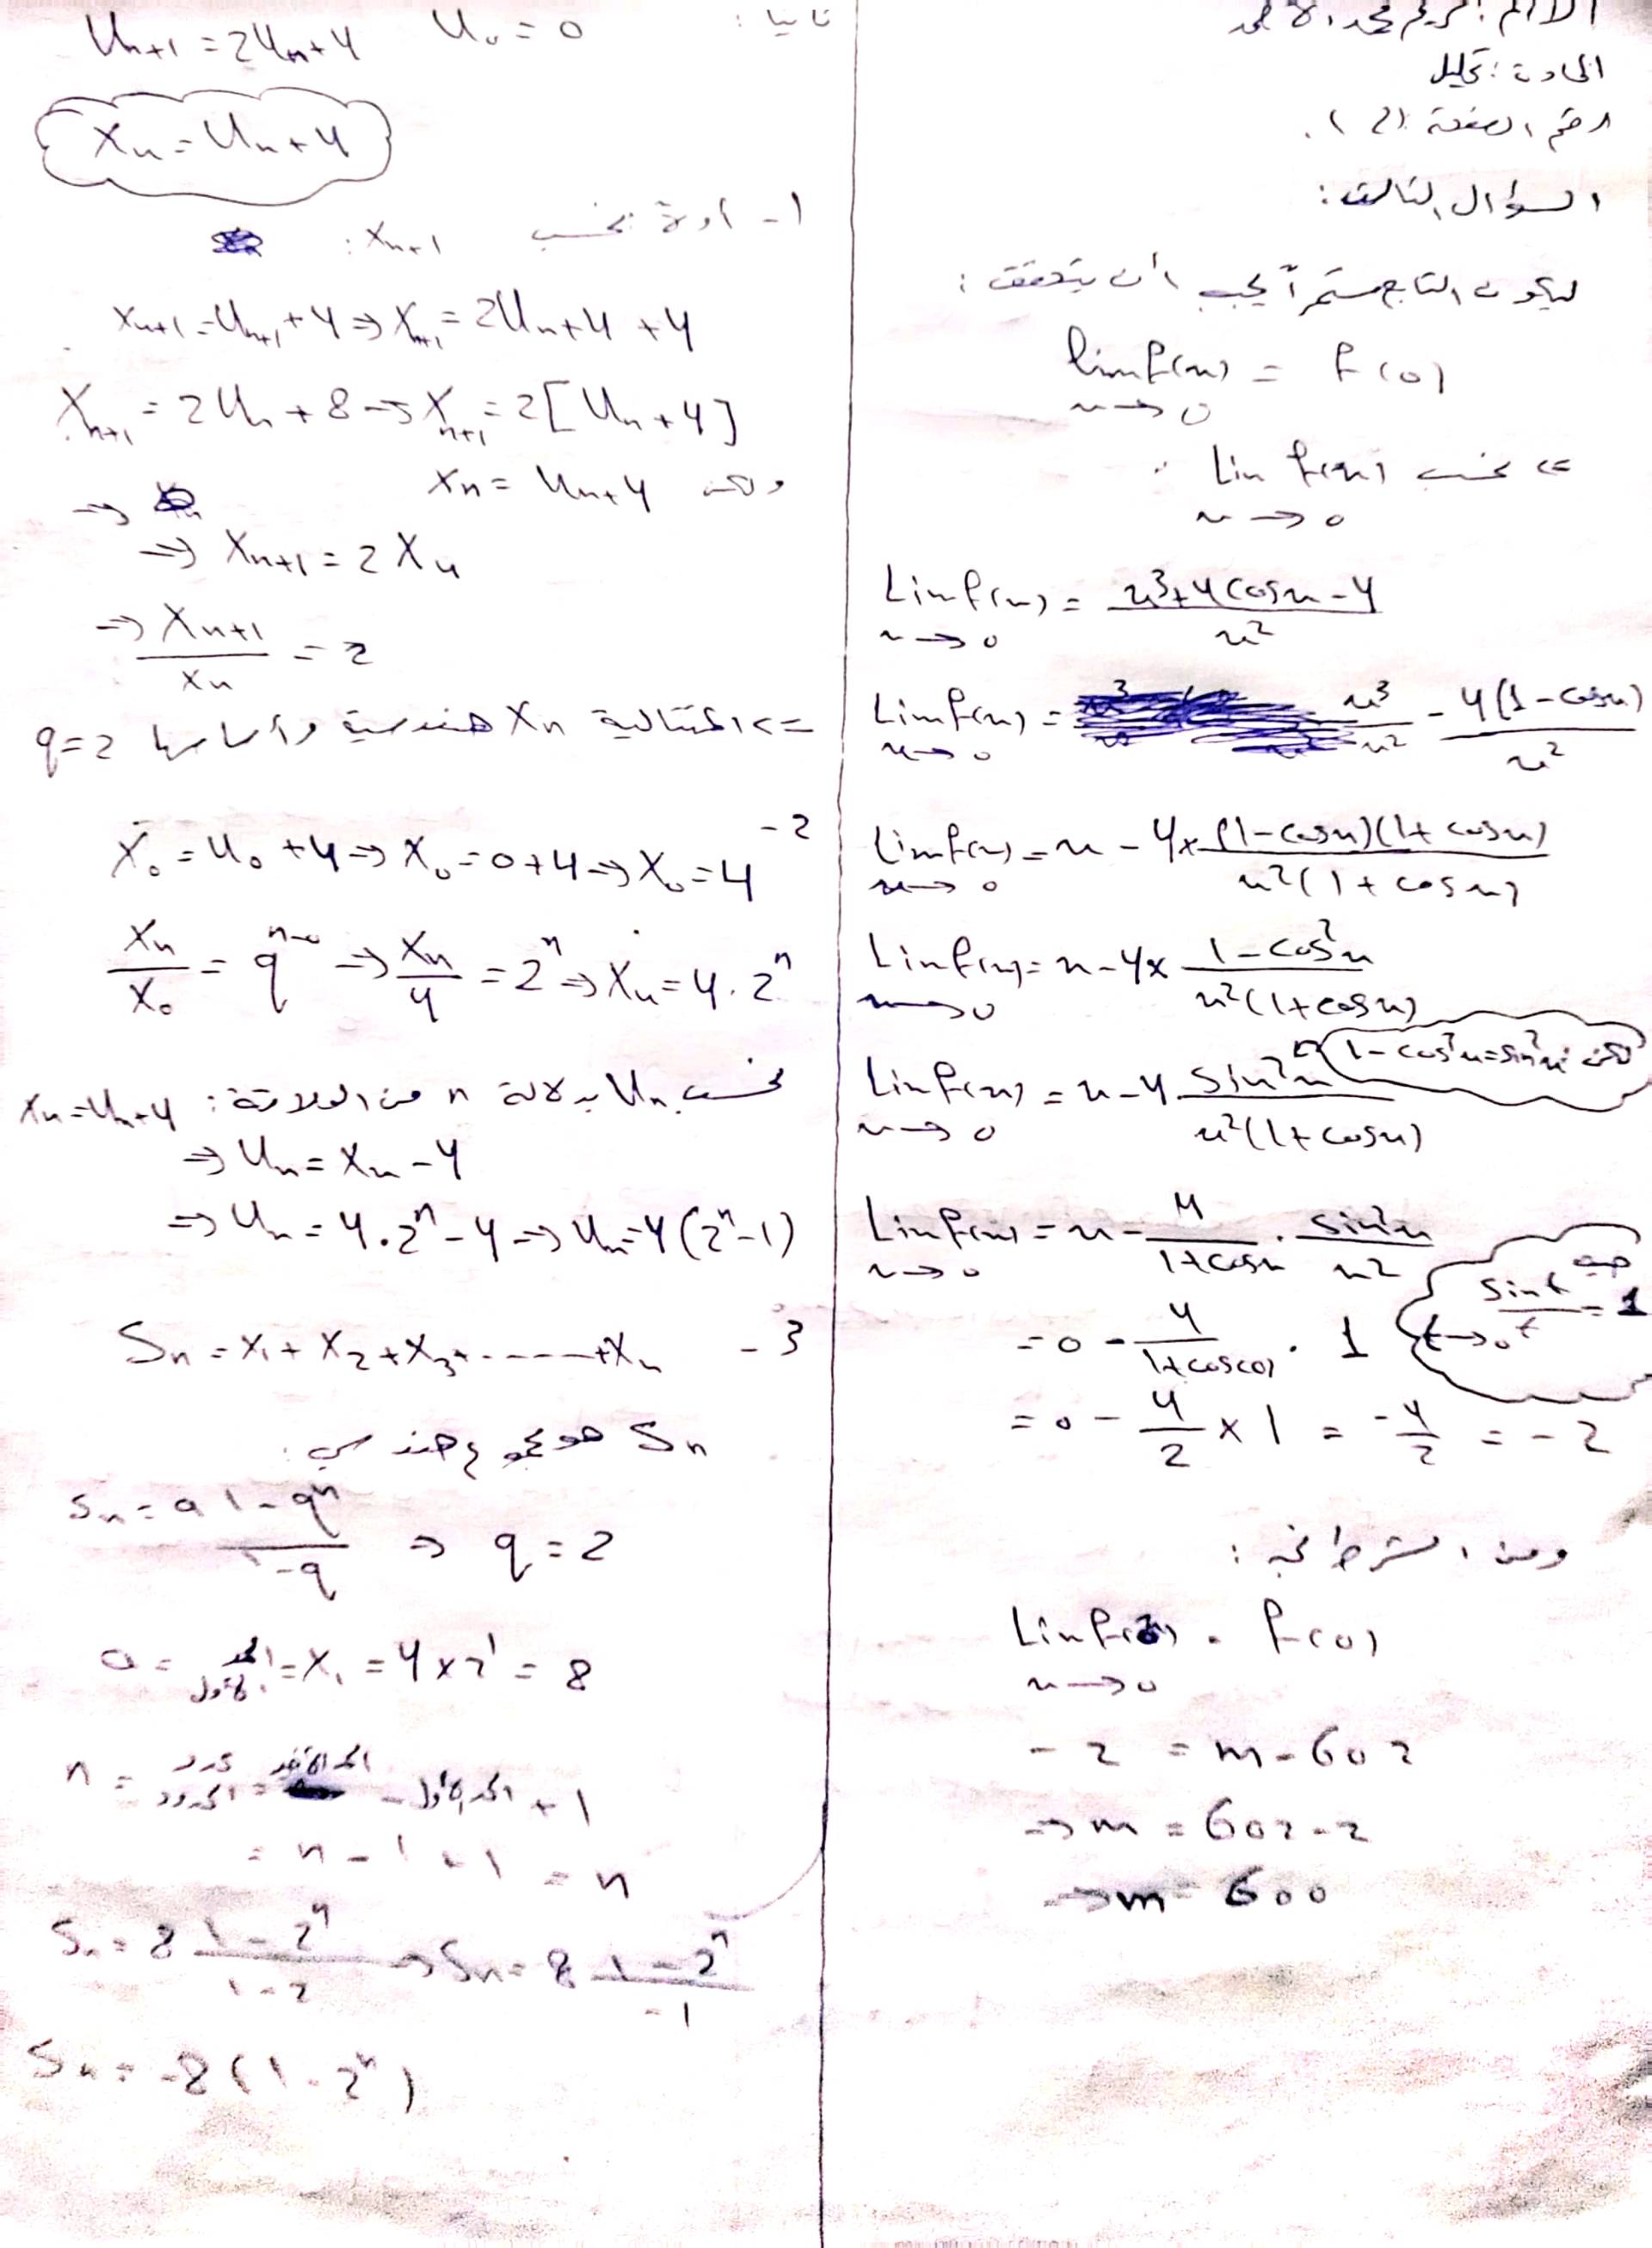 المادة: تحليل
رقم الصفحة: (2).
السؤال الثالث:
ليكون التابع مستمراً يجب أن يتحقق:
lim f(x) = f(0)
x→0
⇐ نحسب Lim f(x)
x→0
Lim f(x) = x³+4cosx-4 / x²
x→0
Lim f(x) = x³/x² - 4(1-cosx)/x²
x→0
Lim f(x) = x - 4× (1-cosx)(1+cosx) / x²(1+cosx)
x→0
Lim f(x) = x - 4× 1-cos²x / x²(1+cosx)
x→0
لكن 1-cos²x=sin²x
Lim f(x) = x - 4. sin²x / x²(1+cosx)
x→0
Lim f(x) = x - 4/1+cosx . sin²x/x²
x→0
حيث sint/t = 1
t→0
= 0 - 4/1+cos(0) . 1
= 0 - 4/2 × 1 = -4/2 = -2
ومن الشرط نجد:
Lim f(x) = f(0)
x→0
-2 = m-602
⇒ m = 602-2
⇒ m = 600
ثانيا: U₀=0 Uₙ₊₁=2Uₙ+4
Xₙ=Uₙ+4
1- أولاً نحسب Xₙ₊₁:
Xₙ₊₁=Uₙ₊₁+4⇒Xₙ₊₁=2Uₙ+4+4
Xₙ₊₁=2Uₙ+8⇒Xₙ₊₁=2[Uₙ+4]
ولكن Xₙ=Uₙ+4
⇒
⇒ Xₙ₊₁=2Xₙ
⇒ Xₙ₊₁/Xₙ = 2
⇐ المتتالية Xₙ هندسية وأساسها q=2
2- X₀=U₀+4⇒X₀=0+4⇒X₀=4
Xₙ/X₀ = qⁿ⁻⁰ ⇒ Xₙ/4 = 2ⁿ ⇒ Xₙ=4.2ⁿ
نحسب Uₙ بدلالة n من العلاقة: Xₙ=Uₙ+4
⇒ Uₙ=Xₙ-4
⇒ Uₙ=4.2ⁿ-4⇒Uₙ=4(2ⁿ-1)
3- Sₙ=X₁+X₂+X₃+......+Xₙ
Sₙ هو مجموع هندسي:
Sₙ=a 1-qⁿ / 1-q ⇒ q=2
a = الحد الأول = X₁ = 4×2¹ = 8
n = عدد الحدود = الحد الأخير - الحد الأول + 1
= n-1+1 = n
Sₙ=8 1-2ⁿ / 1-2 ⇒ Sₙ=8 1-2ⁿ / -1
Sₙ=-8(1-2ⁿ)